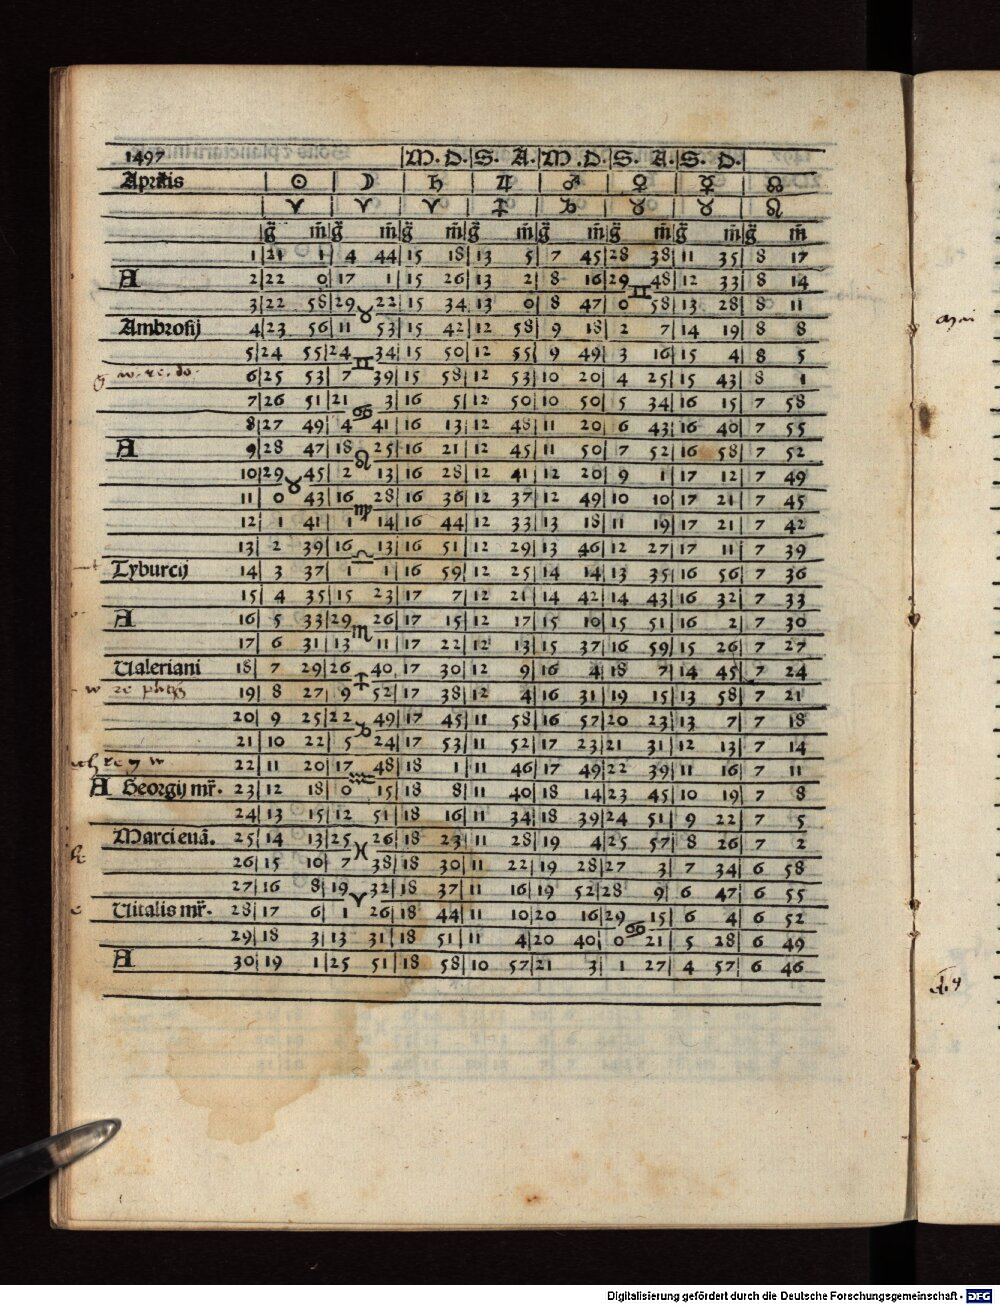 1497 M. D. S. A. M. D. S. A. S. D.
Aprilis ☉ ☽ ♄ ♃ ♂ ♀ ☿ ☊
♈ ♈ ♈ ♐ ♑ ♉ ♉ ♌
g̃ m̃ g̃ m̃ g̃ m̃ g̃ m̃ g̃ m̃ g̃ m̃ g̃ m̃ g̃ m̃
1 21 1 4 44 15 18 13 5 7 45 28 38 11 35 8 17
A 2 22 0 17 1 15 26 13 2 8 16 29 48 12 33 8 14
♊
3 22 58 29 22 15 34 13 0 8 47 0 58 13 28 8 11
♉
Ambrosij 4 23 56 11 53 15 42 12 58 9 18 2 7 14 19 8 8
5 24 55 24 34 15 50 12 55 9 49 3 16 15 4 8 5
♊
6 25 53 7 39 15 58 12 53 10 20 4 25 15 43 8 1
7 26 51 21 3 16 5 12 50 10 50 5 34 16 15 7 58
♋
8 27 49 4 41 16 13 12 48 11 20 6 43 16 40 7 55
A 9 28 47 18 25 16 21 12 45 11 50 7 52 16 58 7 52
♌
10 29 45 2 13 16 28 12 41 12 20 9 1 17 12 7 49
♉
11 0 43 16 28 16 36 12 37 12 49 10 10 17 21 7 45
♍
12 1 41 1 14 16 44 12 33 13 18 11 19 17 21 7 42
13 2 39 16 13 16 51 12 29 13 46 12 27 17 11 7 39
♎
Tyburcij 14 3 37 1 1 16 59 12 25 14 14 13 35 16 56 7 36
15 4 35 15 23 17 7 12 21 14 42 14 43 16 32 7 33
A 16 5 33 29 26 17 15 12 17 15 10 15 51 16 2 7 30
♏
17 6 31 13 11 17 22 12 13 15 37 16 59 15 26 7 27
Ualeriani 18 7 29 26 40 17 30 12 9 16 4 18 7 14 45 7 24
♐
19 8 27 9 52 17 38 12 4 16 31 19 15 13 58 7 21
20 9 25 22 49 17 45 11 58 16 57 20 23 13 7 7 18
♑
21 10 22 5 24 17 53 11 52 17 23 21 31 12 13 7 14
22 11 20 17 48 18 1 11 46 17 49 22 39 11 16 7 11
♒
A Georgij mr̃. 23 12 18 0 15 18 8 11 40 18 14 23 45 10 19 7 8
24 13 15 12 51 18 16 11 34 18 39 24 51 9 22 7 5
Marci euã. 25 14 13 25 26 18 23 11 28 19 4 25 57 8 26 7 2
♓
26 15 10 7 38 18 30 11 22 19 28 27 3 7 34 6 58
27 16 8 19 32 18 37 11 16 19 52 28 9 6 47 6 55
♈
Uitalis mr̃. 28 17 6 1 26 18 44 11 10 20 16 29 15 6 4 6 52
♋
29 18 3 13 31 18 51 11 4 20 40 0 21 5 28 6 49
A 30 19 1 25 51 18 58 10 57 21 3 1 27 4 57 6 46
Digitalisierung gefördert durch die Deutsche Forschungsgemeinschaft - DFG